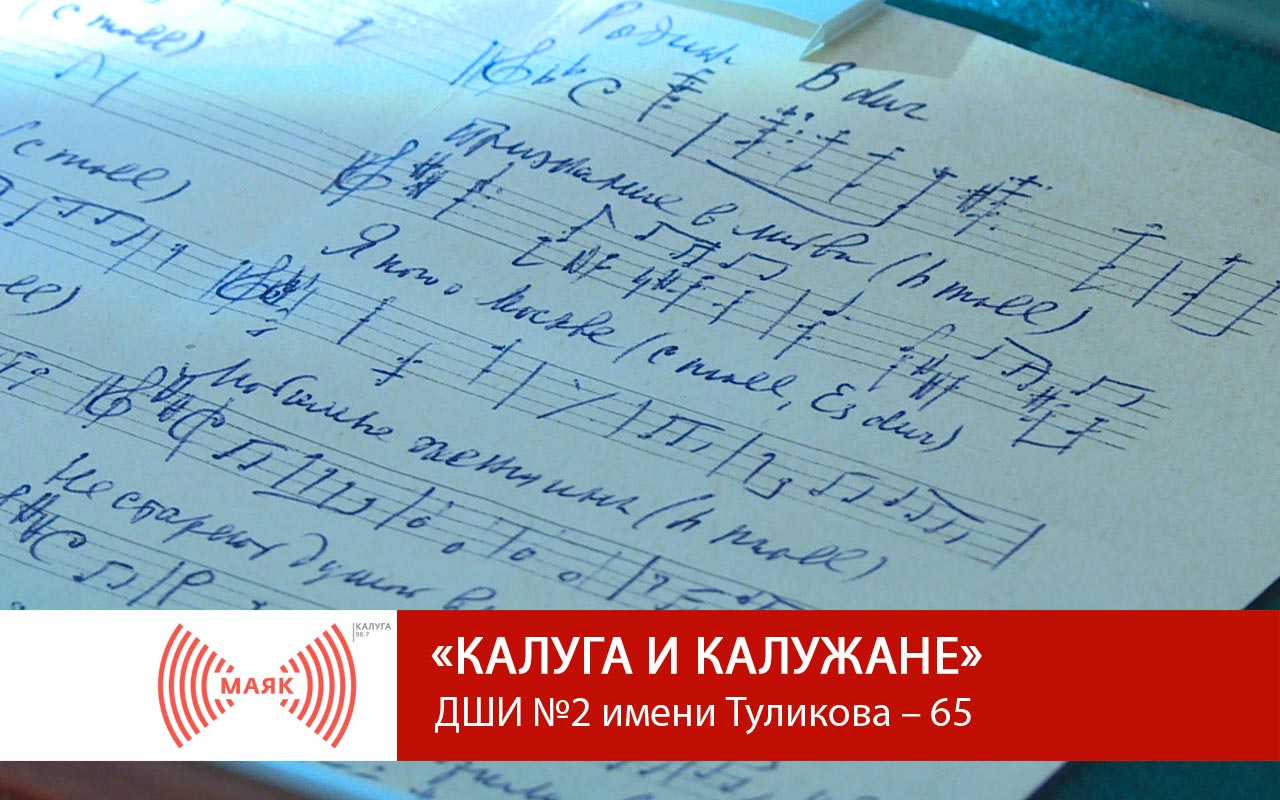 (c moll)
Родина
B dur
Признание в любви (h moll)
(c moll)
Я пою о Москве (c moll, Es dur)
Любимые женщины (h moll)
Не стареют душой в
КАЛУГА
98.7
МАЯК
«КАЛУГА И КАЛУЖАНЕ»
ДШИ №2 имени Туликова – 65